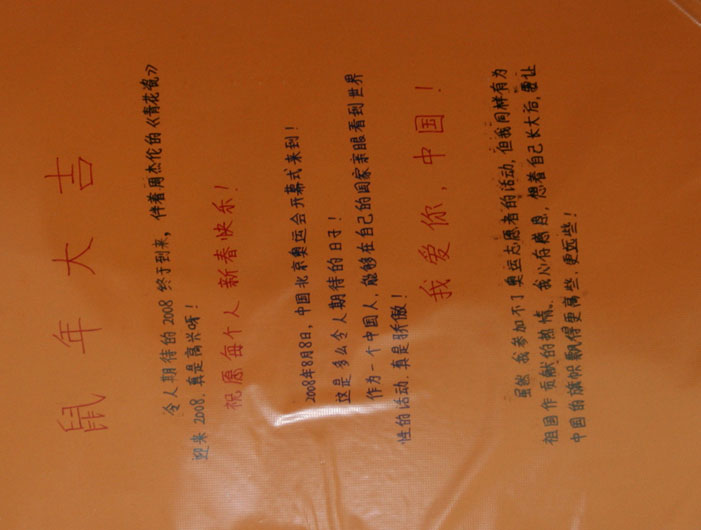 鼠年大吉
令人期待的2008终于到来，伴着周杰伦的《青花瓷》
迎来2008，真是高兴呀！
祝愿每个人新春快乐！
2008年8月8日，中国北京奥运会开幕式来到！
这是多么令人期待的日子！
作为一个中国人，能够在自己的国家亲眼看到世界
性的活动，真是骄傲！
我爱你，中国！
虽然我参加不了奥运志愿者的活动，但我同样有为
祖国作贡献的热情。我心有感息，想着自己长大后，要让
中国的旗帜飘得更高些，更远些！